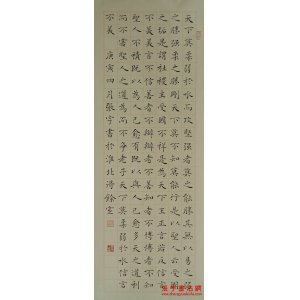 天下莫柔弱於水而攻堅強者莫之能勝其無以易
之勝強柔之勝剛天下莫不知莫能行是以聖人云受國
之垢是謂社稷主受國不祥是為天下王正言若反信言
不美美言不信善者不辯辯者不善知者不博博者不知
聖人不積既以為人己愈有既以與人己愈多天之道利
而不害聖人之道為而不爭老子天下莫柔弱於水信言
不美 庚寅四月張宇書於淮北